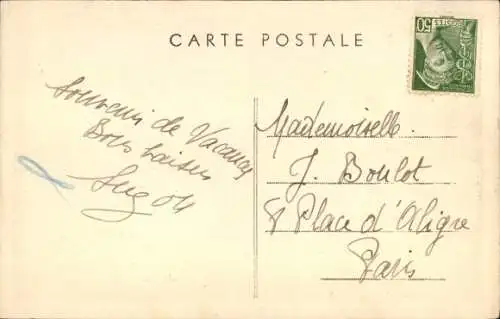 CARTE POSTALE
50
Souvenir de Vacances
Bons baisers
Mademoiselle
J. Boulot
8 Place d'Aligre
Paris